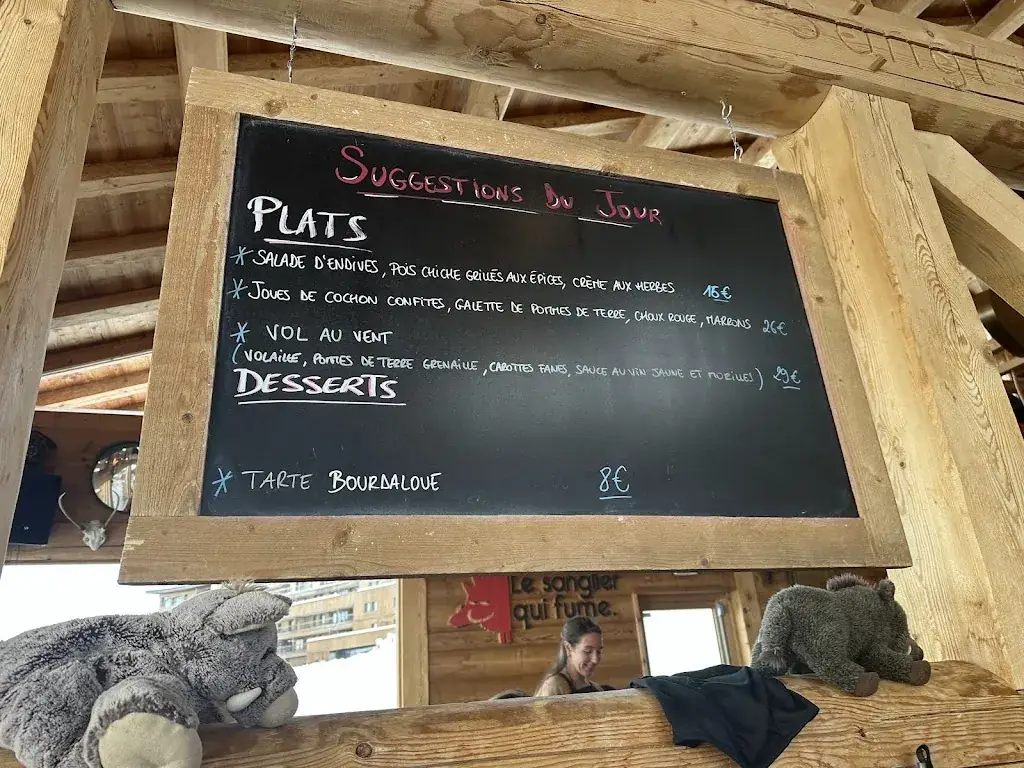 SUGGESTIONS DU JOUR
PLATS
* SALADE D'ENDIVES, POIS CHICHE GRILLÉS AUX ÉPICES, CRÈME AUX HERBES 16€
* JOUES DE COCHON CONFITES, GALETTE DE POMMES DE TERRE, CHOUX ROUGE, MARRONS 26€
* VOL AU VENT
(VOLAILLE, POMMES DE TERRE GRENAILLE, CAROTTES FANES, SAUCE AU VIN JAUNE ET MORILLES) 29€
DESSERTS
* TARTE BOURDALOUE 8€
Le sanglier
qui fume.